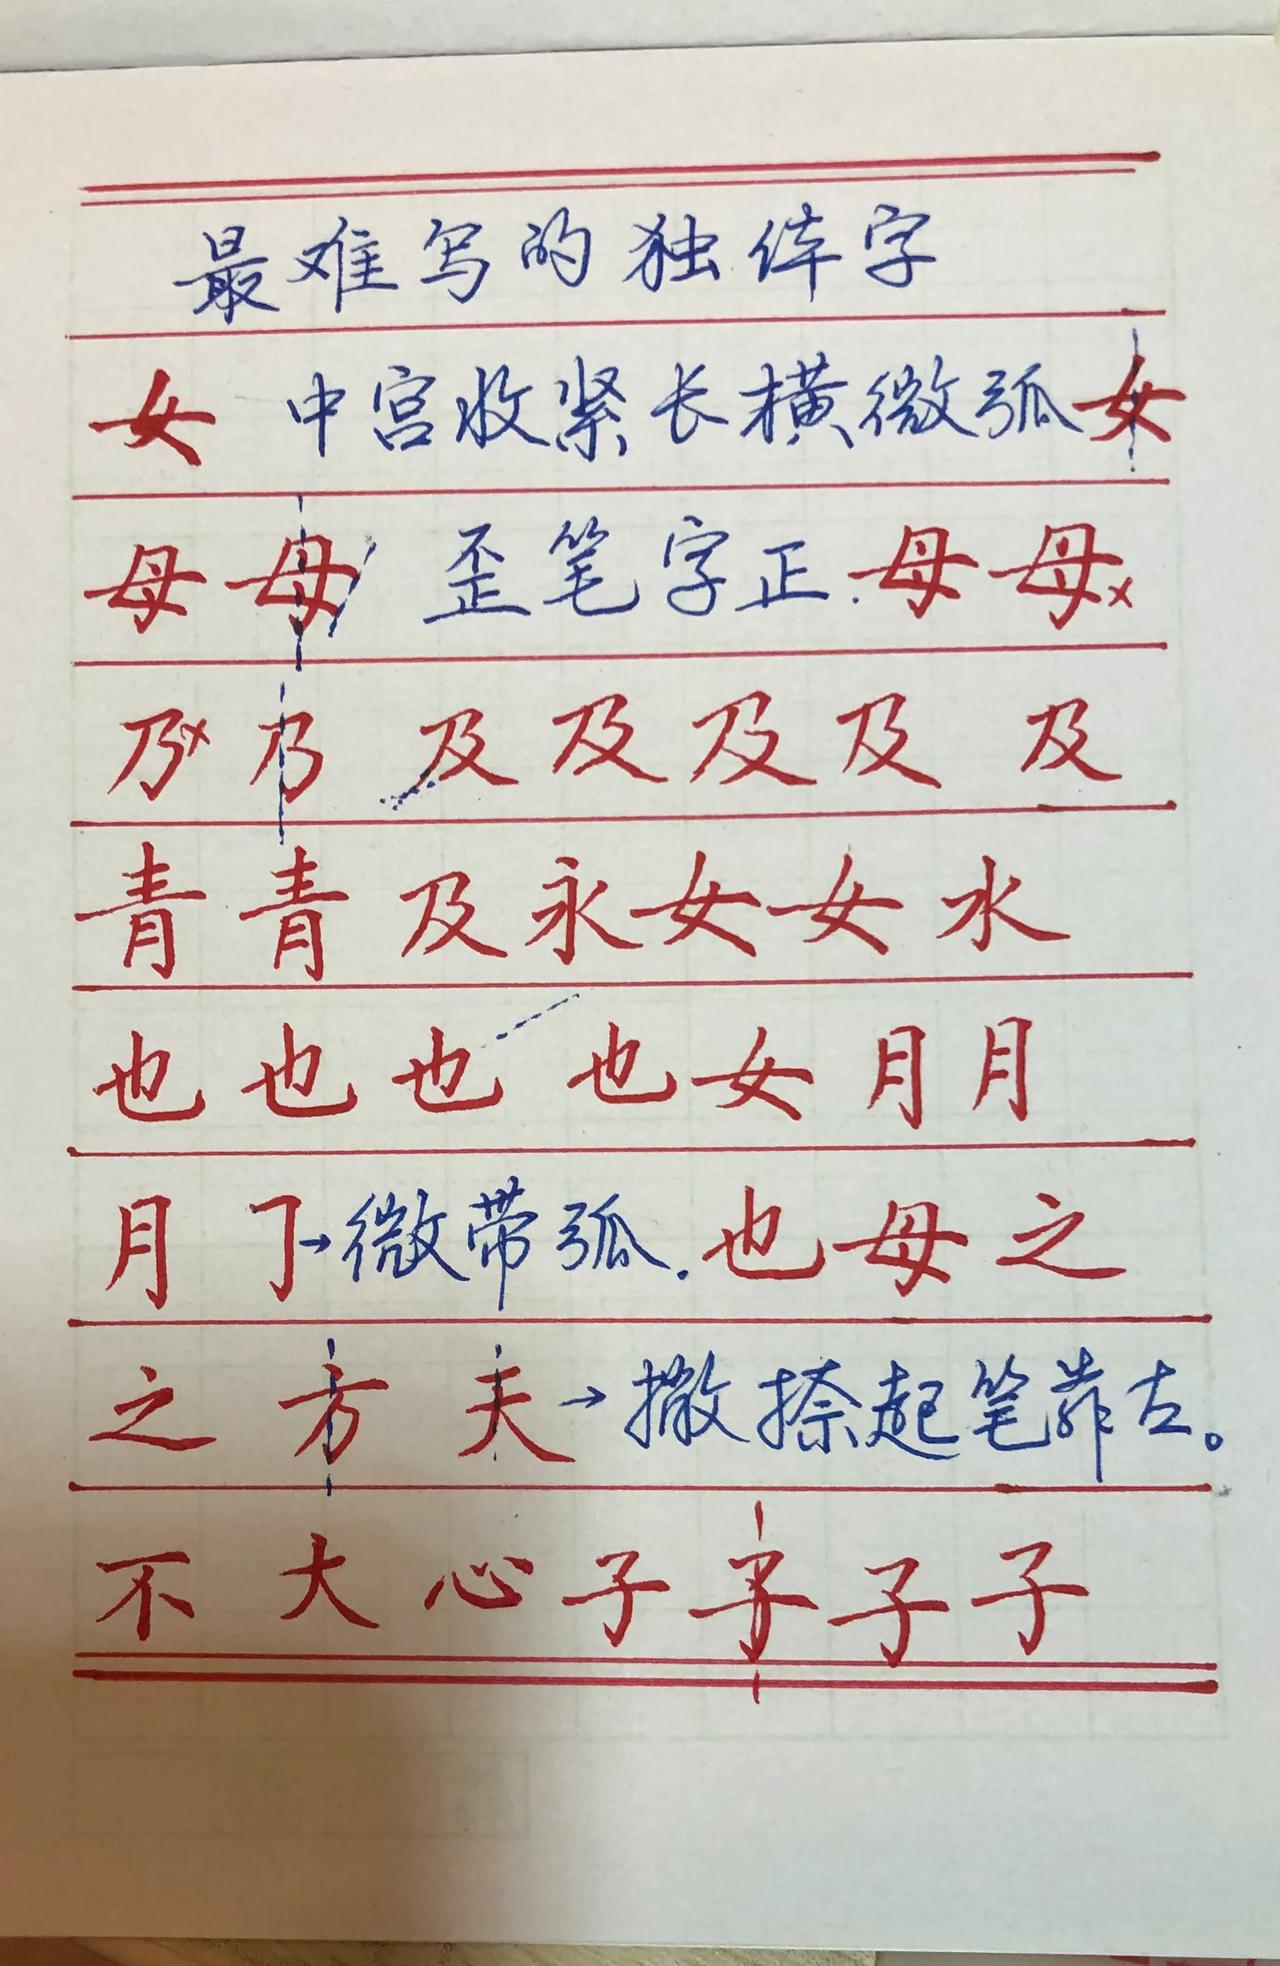 最难写的独体字
女 中宫收紧长横微弧女
母母 歪笔字正.母母×
乃×乃及及及及及
青青及永女女水
也也也也女月月
月㇆→微带弧.也母之
之方夫→撇捺起笔靠左。
不大心子子子子